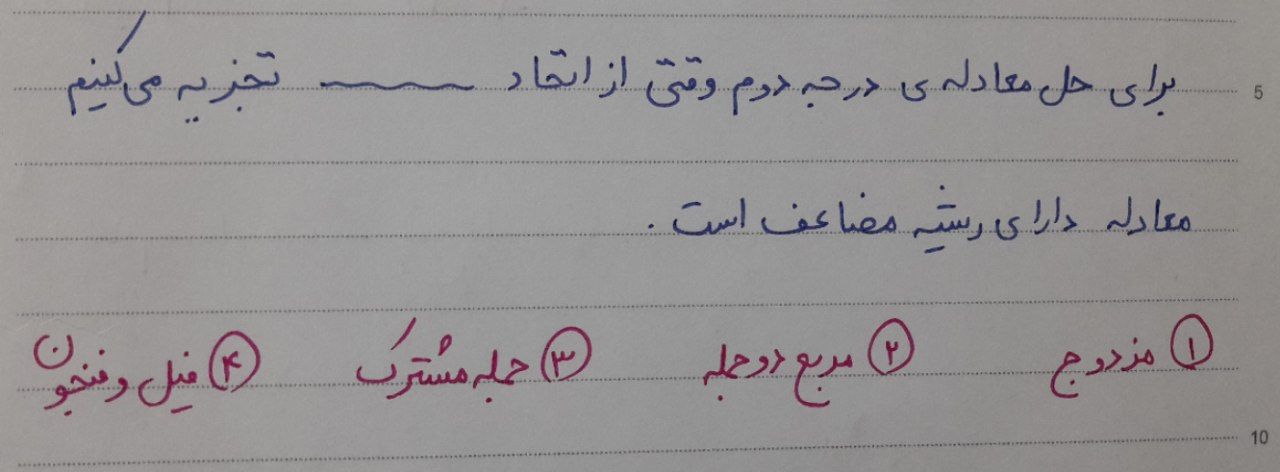 برای حل معادله ی درجه دوم وقتی از اتحاد ــــــ تجزیه می کنیم
معادله دارای ریشه مضاعف است .
① مزدوج ② مربع دو جمله ③ جمله مشترک ④ فیل و فنجون
5
10